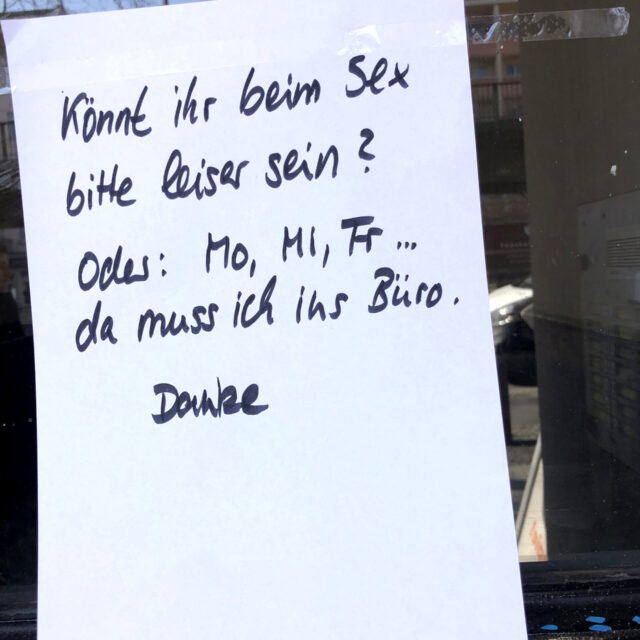 Könnt ihr beim Sex
bitte leiser sein?
Oder: Mo, Mi, Fr...
da muss ich ins Büro.
Danke